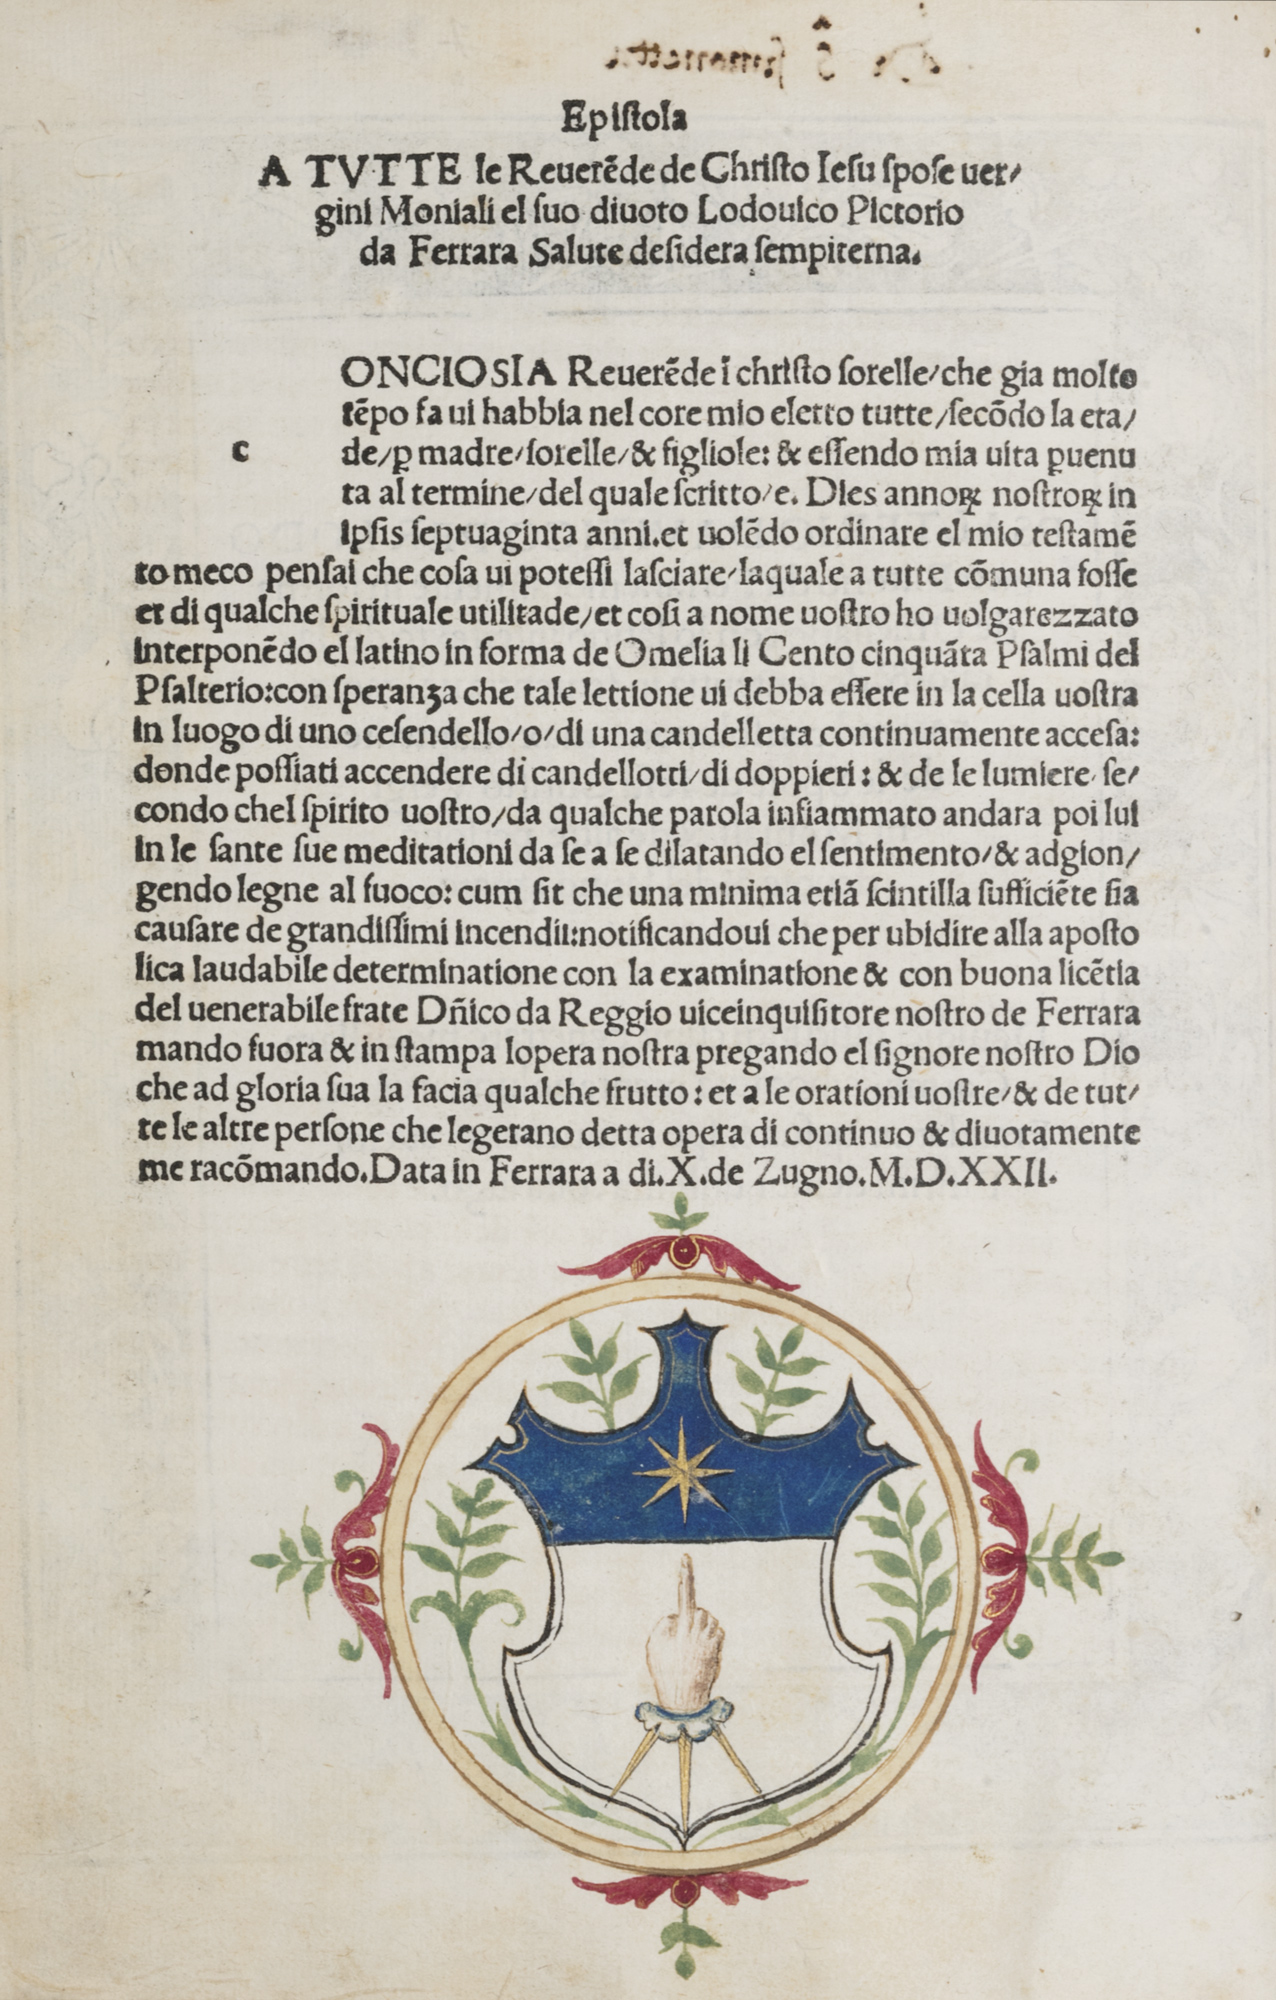 Epiſtola
A TVTTE le Reuerẽde de Chriſto Ieſu ſpoſe uer/
gini Moniali el ſuo diuoto Lodouico Pictorio
da Ferrara Salute deſidera ſempiterna.
ONCIOSIA Reuerẽde ĩ chriſto ſorelle/che gia molto
tẽpo fa ui habbia nel core mio eletto tutte/ſecõdo la eta/
c de/ꝑ madre/ſorelle/& figliole: & eſſendo mia uita ꝑuenu
ta al termine/del quale ſcritto/e. Dies annoꝝ noſtroꝝ in
ipſis ſeptuaginta anni.et uolẽdo ordinare el mio teſtamẽ
to meco penſai che coſa ui poteſſi laſciare/laquale a tutte cõmuna foſſe
et di qualche ſpirituale utilitade/et coſi a nome uoſtro ho uolgarezzato
interponẽdo el latino in forma de Omelia li Cento cinquãta Pſalmi del
Pſalterio:con ſperanʒa che tale lettione ui debba eſſere in la cella uoſtra
in luogo di uno ceſendello/o/di una candelletta continuamente acceſa:
donde poſſiati accendere di candellotti/di doppieri: & de le lumiere/ſe/
condo chel ſpirito uoſtro/da qualche parola infiammato andara poi lui
in le ſante ſue meditationi da ſe a ſe dilatando el ſentimento/& adgion/
gendo legne al fuoco: cum ſit che una minima etiã ſcintilla ſufficiẽte ſia
cauſare de grandiſſimi incendii:notificandoui che per ubidire alla apoſto
lica laudabile determinatione con la examinatione & con buona licẽtia
del uenerabile frate Dñico da Reggio uiceinquiſitore noſtro de Ferrara
mando fuora & in ſtampa lopera noſtra pregando el ſignore noſtro Dio
che ad gloria ſua la facia qualche frutto: et a le orationi uoſtre/& de tut/
te le altre perſone che legerano detta opera di continuo & diuotamente
me racõmando.Data in Ferrara a di.X.de Zugno.M.D.XXII.